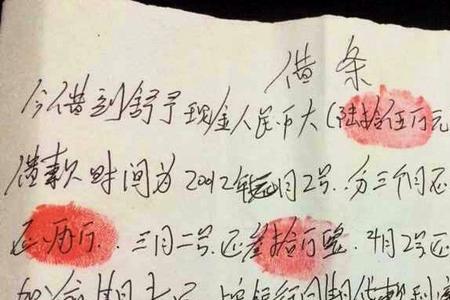 借条
今借到舒予现金人民币大(陆拾伍万元
借款时间为2012年元月2号.分三个月还
还.伍万.三月二号.还叁拾万整.4月2号还